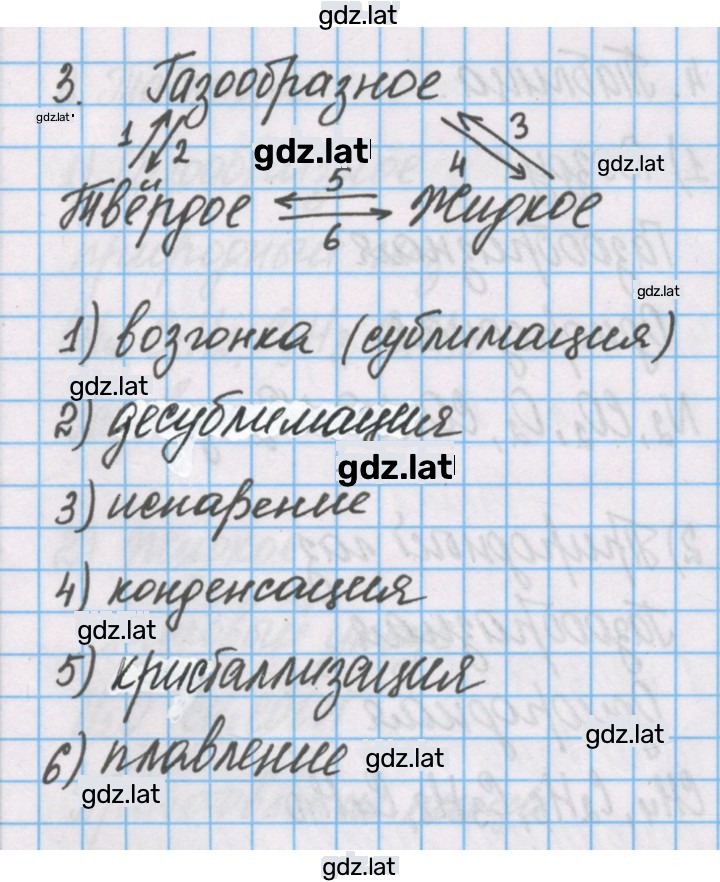 gdz.lat
3. Газообразное
gdz.lat
1 2 gdz.lat 3
4 gdz.lat
5
Твёрдое Жидкое
6
gdz.lat
1) возгонка (сублимация)
gdz.lat
2) десублимация
gdz.lat
3) испарение
4) конденсация
gdz.lat
5) кристаллизация
gdz.lat
6) плавление gdz.lat
gdz.lat
gdz.lat